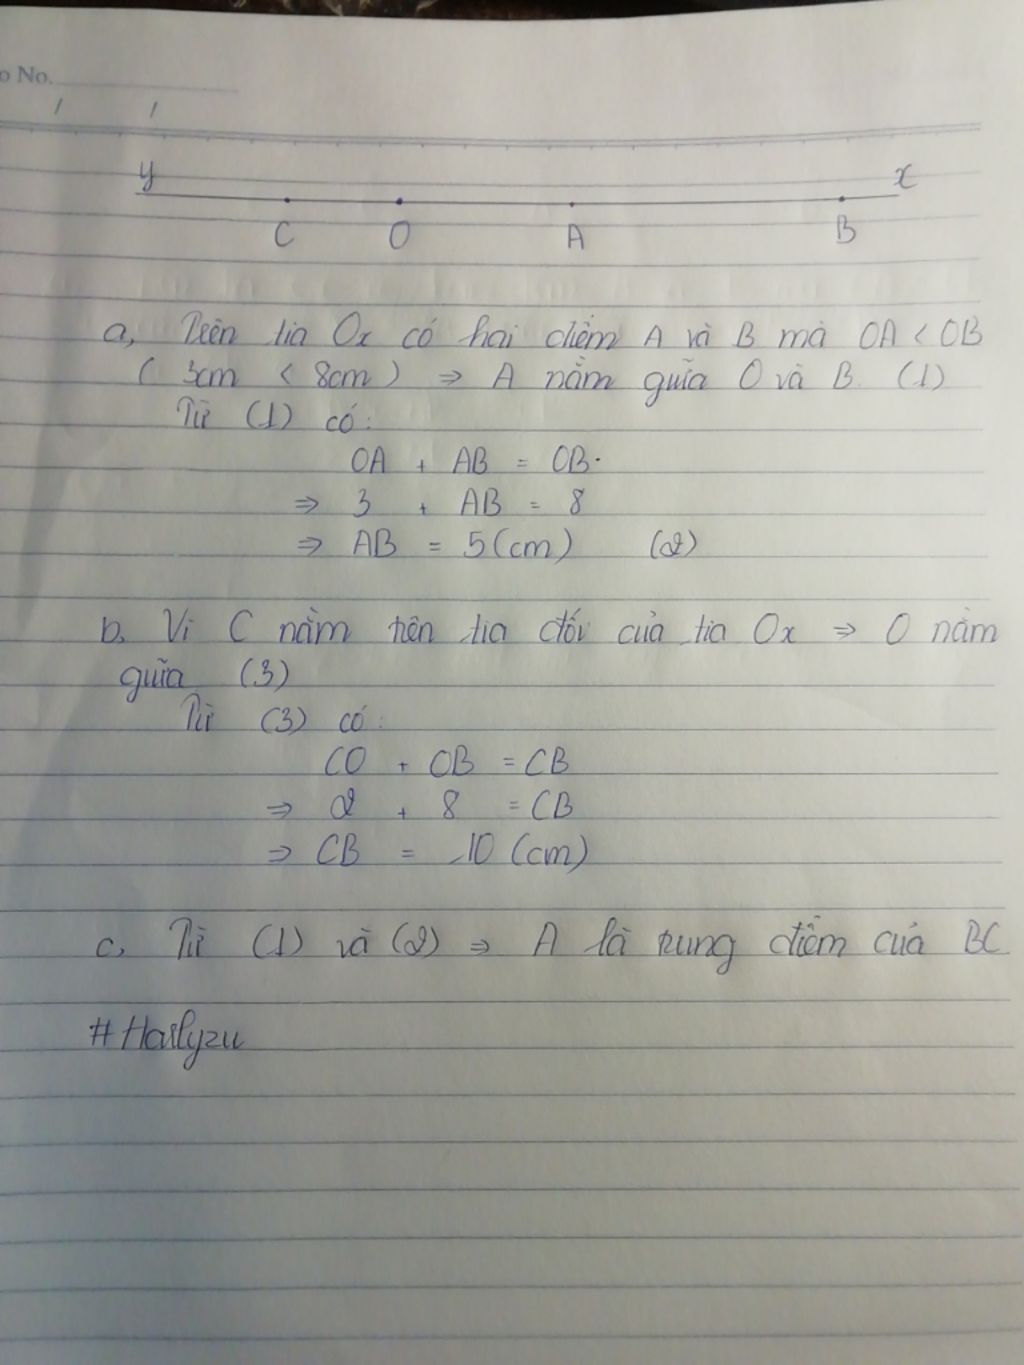 o No.
/ /
y x
C O A B
a, Trên tia Ox có hai điểm A và B mà OA < OB
( 3cm < 8cm ) ⇒ A nằm giữa O và B. (1)
Từ (1) có:
OA + AB = OB.
⇒ 3 + AB = 8
⇒ AB = 5(cm) (2)
b, Vì C nằm trên tia đối của tia Ox ⇒ O nằm
giữa (3)
Từ (3) có:
CO + OB = CB
⇒ 2 + 8 = CB
⇒ CB = 10 (cm)
c, Từ (1) và (2) ⇒ A là trung điểm của BC
#Hailyzu